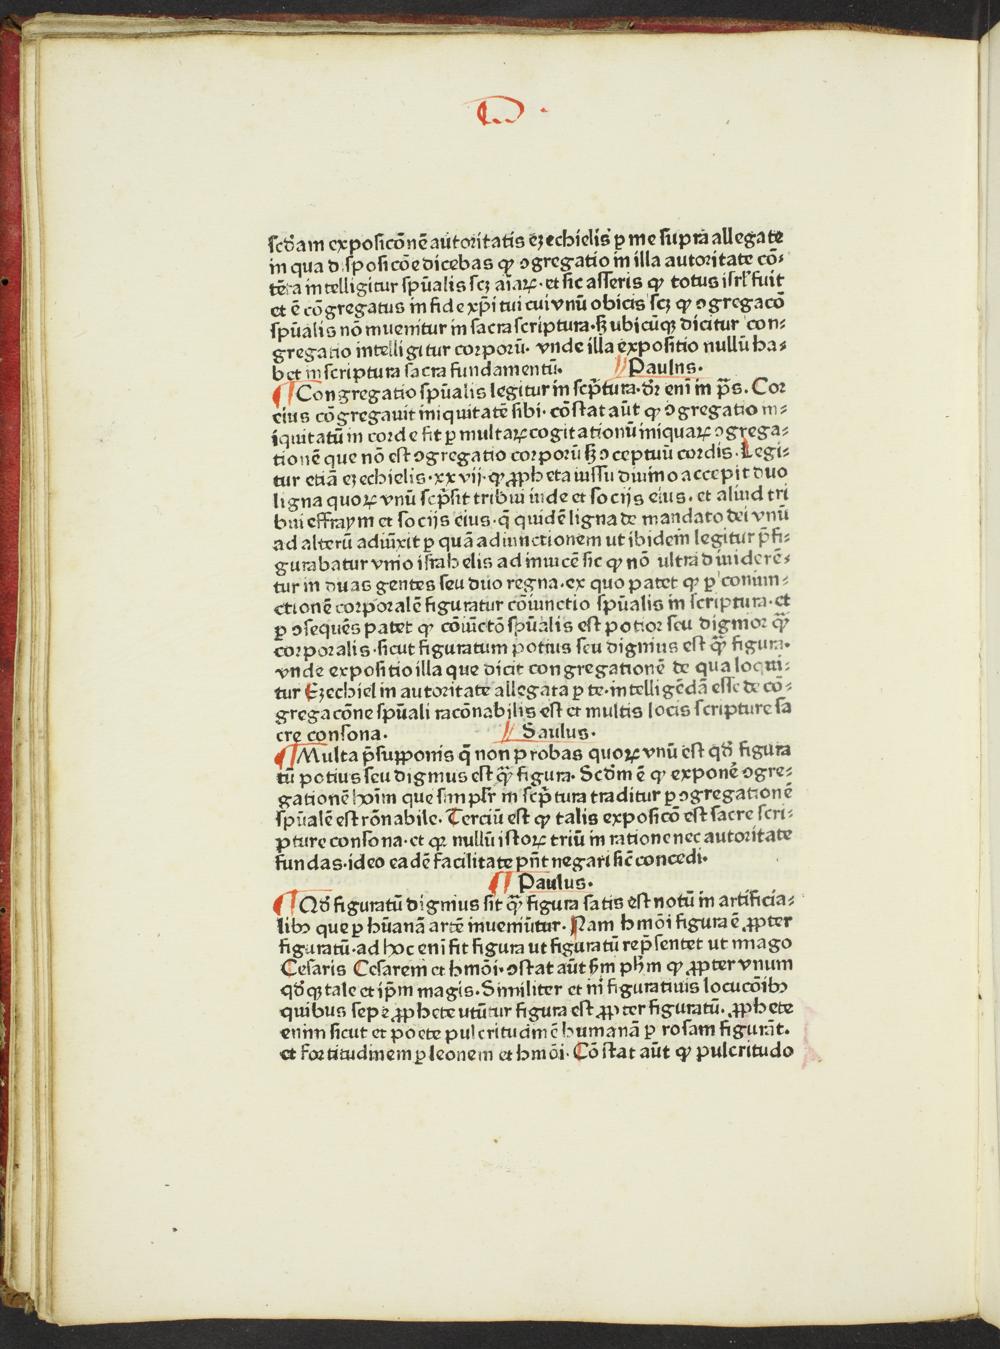 scd̄am exposicōnē autoritatis ezechielis ꝑ me supra allegate
in qua dısposicōe dicebas ꝙ ↄgregatio in illa autoritate cō⸗
tēta intelligitur spūalis scꝫ aīaꝝ· et sic asseris ꝙ totus isrl' fuit
et ē cōgregatus in fide xp̄i tui cui vnū obicis scꝫ ꝙ ↄgregacō
spūalis nō inuenitur in sacra scriptura· sꝫ ubicūqꝫ dicitur con⸗
gregatio intelligitur corporū· vnde illa expositio nullū ha⸗
bet in scriptura sacra fundamentū. Paulns.
¶ Congregatio spūalis legitur in scp̄tura· dr̄ enī in p̄s. Cor
eius cōgregauit iniquitatē sibi· cōstat aūt ꝙ ↄgregatio in⸗
iquitatū in corde fit ꝑ multaꝝ cogitationū iniquaꝝ ↄgrega⸗
tionē que nō est ↄgregatio corporū sꝫ ↄceptuū cordis. Legi⸗
tur etiā ezechielis· xxvij· ꝙ ꝓpheta iussu diuino accepit duo
ligna quoꝝ vnū scp̄sit tribui iude et socijs eius. et aliud tri
bui effraym et socijs eius· q̄ quidē ligna de mandato dei vnū
ad alterū adiūxit ꝑ quā adiunctionem ut ibidem legitur p̄fi⸗
gurabatur vnio israhelis ad inuicē sic ꝙ nō ultra diuiderē⸗
tur in duas gentes seu duo regna. ex quo patet ꝙ ꝑ coniun⸗
ctionē corporalē figuratur cōiunctio spūalis in scriptura· et
ꝑ ↄsequēs patet ꝙ cōiūctō spūalis est potior seu dignior qꝫ̄
corporalis· sicut figuratum potius seu dignius est qꝫ̄ figura.
vnde expositio illa que dicit congregationē de qua loqui⸗
tur Ezechiel in autoritate allegata ꝑ te· intelligēdā esse de cō⸗
gregacōne spūali racōnabilis est et multis locis scripture sa
cre consona. Saulus.
¶ Multa p̄supponis q̄ non probas quoꝝ vnū est qd̄ figura
tū potius seu dignius est qꝫ̄ figura. Scd̄m ē ꝙ exponē ↄgre⸗
gationē hoīm que simplr̄ in scp̄tura traditur ꝑ ↄgregationē
spūalē est rōnabile. Terciū est ꝙ talis exposicō est sacre scri⸗
pture consona· et qꝛ nullū istoꝝ triū in ratione nec autoritate
fundas· ideo eadē facilitate pn̄t negari sic̄ concedi.
¶ Paulus.
¶ Qd̄ figuratū dignius sit qꝫ̄ figura satis est notū in artificia⸗
libꝰ que ꝑ hūanā artē inueniūtur. Nam hmōi figura ē ꝓpter
figuratū· ad hoc enī fit figura ut figuratū rep̄sentet ut imago
Cesaris Cesarem et hmōi· ↄstat aūt sm̄ phm̄ ꝙ ꝓpter vnum
qd̄qꝫ tale et ip̄m magis. Similiter et in figuratiuis locucōibꝰ
quibus sepe ꝓphete utūtur figura est ꝓpter figuratū. ꝓphete
enim sicut et poete pulcritudinē humanā ꝑ rosam figurāt.
et fortitudinem ꝑ leonem et hmōi· Cōstat aūt ꝙ pulcritudo